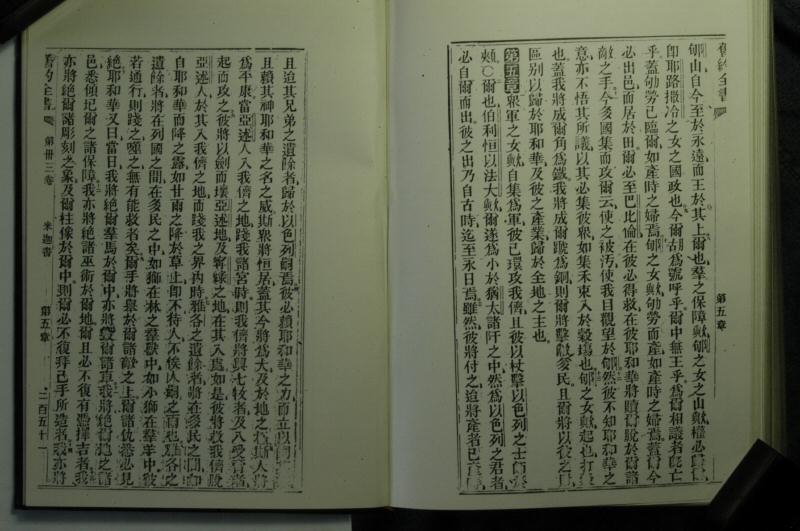 舊約全書
第五章
郇山自今至於永遠而王於其上爾也羣之保障歟郇之女之山歟權必歸
即耶路撒冷之女之國政也今爾胡爲號呼乎爾中無王乎爲爾相議者旣亡
乎蓋劬勞已臨爾如產時之婦焉郇之女歟劬勞而產如產時之婦焉蓋爾今
必出邑而居於田爾必至巴比倫在彼必得救在彼耶和華將贖爾脫於爾諸
敵之手今多國集而攻爾云使之被汚使我目觀望於郇然彼不知耶和華之
意亦不悟其所議以其必集彼眾如集禾束入於穀塲也郇之女歟起也打
也蓋我將成爾角爲鐵我將成爾蹤爲銅則爾將擊散多民且爾將以彼之
區別以歸於耶和華及彼之產業歸於全地之主也
第五章眾軍之女歟自集爲軍彼已環攻我儕且彼以杖擊以色列之士師
頰○爾也伯利恒以法大歟爾遂爲小於猶大諸阡之中然爲以色列之君者
必自爾而出彼之出乃自古時迄至永日焉雖然彼將付之迫將產者已
且迫其兄弟之遺餘者歸於以色列嗣焉彼必賴耶和華之力而立以
且賴其神耶和華之名之威斯眾將恒居蓋其今將爲大及於地之極斯人將
爲平康當亞述人入我儕之地踐我諸宮時則我儕將興七牧者及八受膏者
起而攻之彼將以劍而壞亞述地及寧綠之地在其入焉如是彼將救我儕脫
亞述人於其入我儕之地而踐我之界內時雅各之遺餘者將在多民之間如
自耶和華而降之露如甘雨之降於草上即不待人不候人嗣之
遺餘者將在列國之間在多民之中如獅在林之羣獸中如小獅在羣羊中彼
若通行則踐之裂之無有能救者矣爾手將舉於爾諸敵之上爾諸仇悉必見
絕耶和華又曰當日我將絕爾羣馬於爾中亦將毀爾諸車我將絕爾地之諸
邑悉傾圮爾之諸保障我亦將絕諸巫術於爾地爾且必不復有憑擇吉者我
亦將絕爾諸彫刻之象及爾柱像於爾中則爾必不復拜己手所造者我亦將
舊約全書
第卅三卷
米迦書
第五章
二百五十二